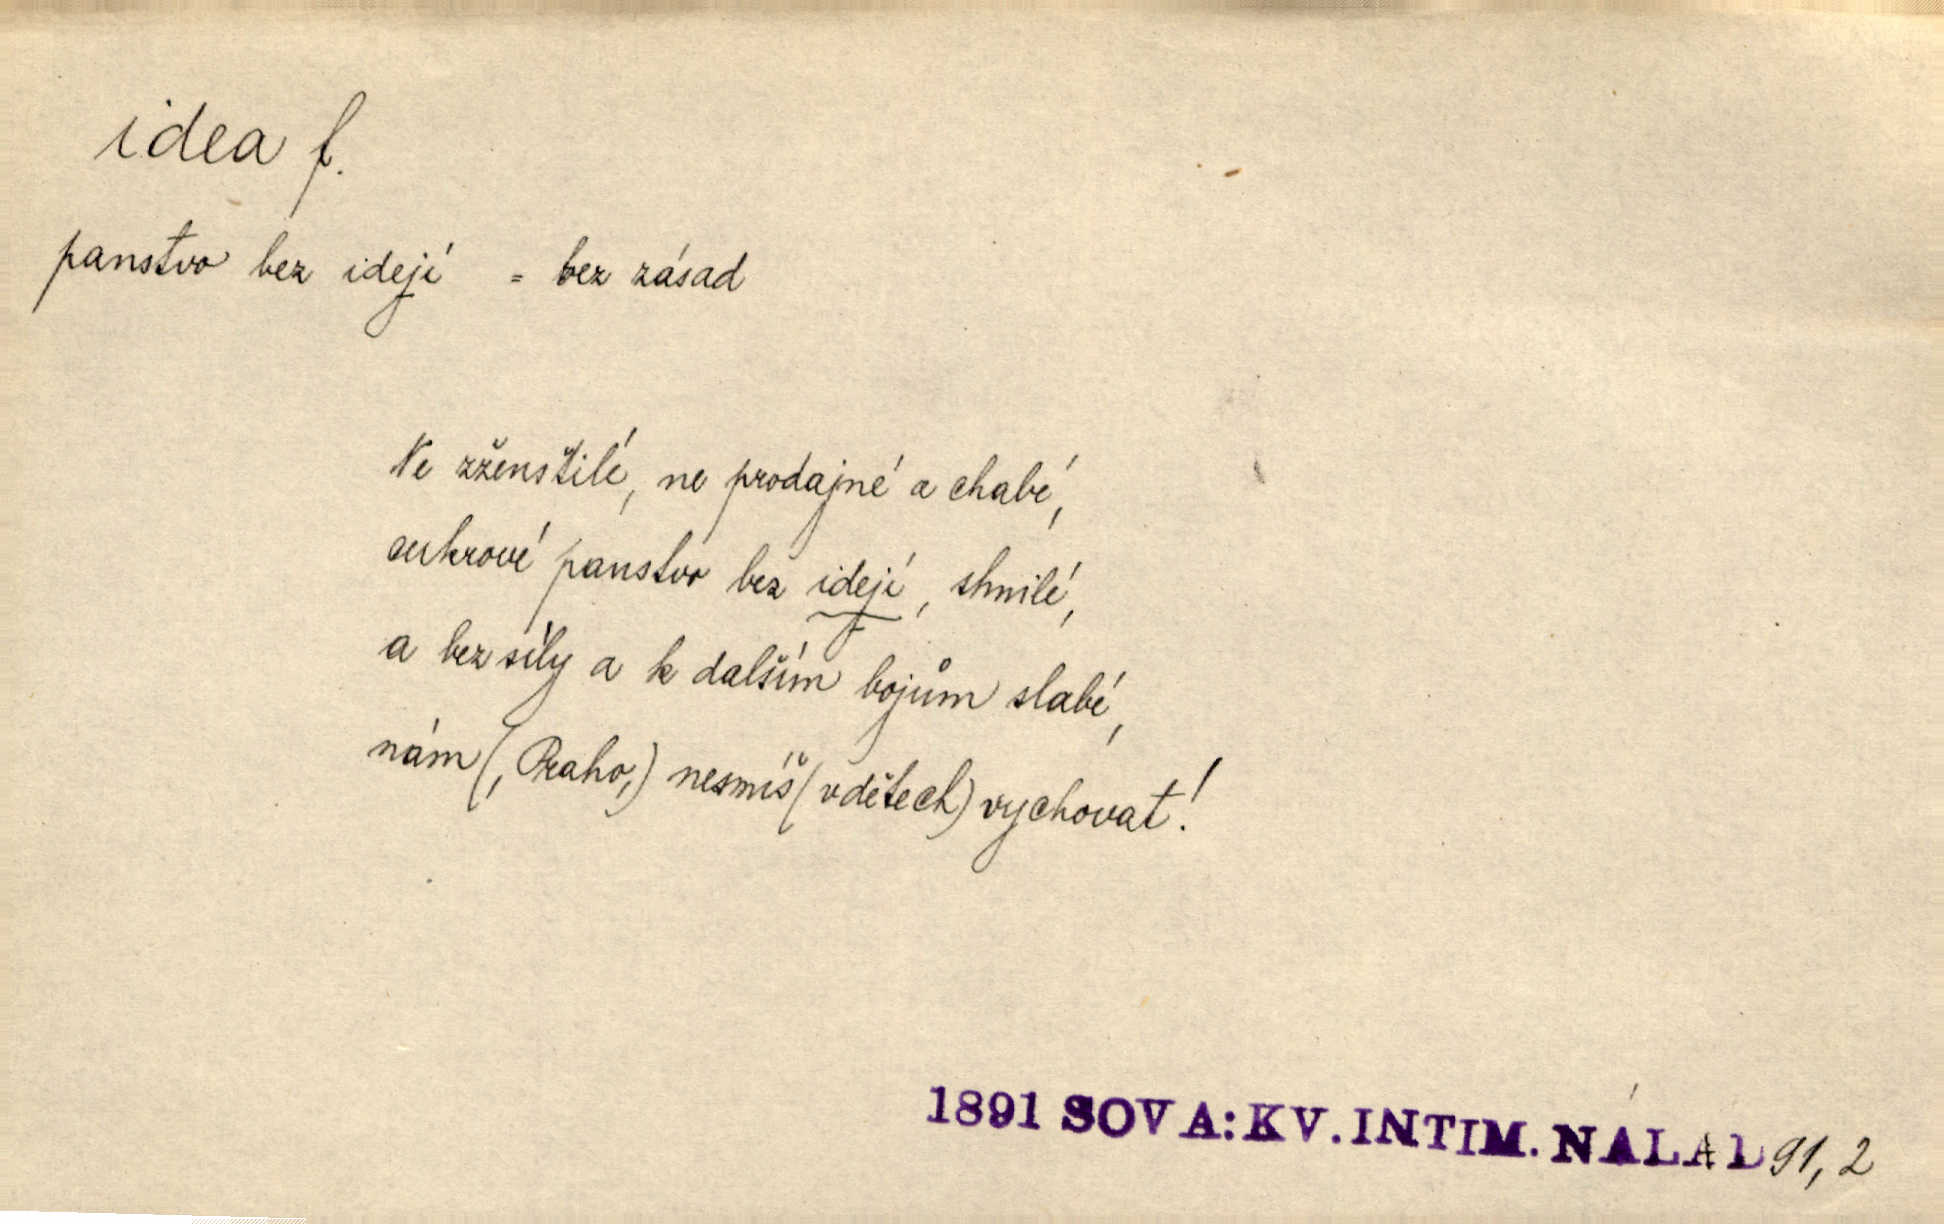 idea f.
panstvo bez idejí = bez zásad
Ne zženštilé, ne prodajné a chabé,
cukrové panstvo bez idejí, shnilé,
a bez síly a k dalším bojům slabé,
nám (, Praho,) nesmíš (v dětech) vychovat!
1891 SOVA: KV. INTIM. NÁLAD 91, 2